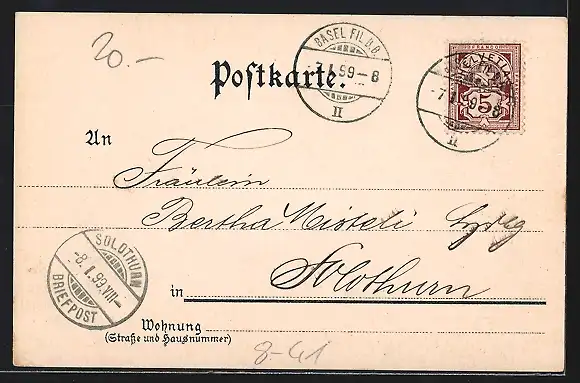 20.-
BASEL FIL. B.B.
7.I.99–8
II
Postkarte.
FRANCO
HELVETIA
5
-7.I.99–8
II
An
Fräulein
Bertha Misteli
Solothurn
in
SOLOTHURN
-8.I.99.VIII-
BRIEFPOST
Wohnung
(Straße und Hausnummer)
8-41